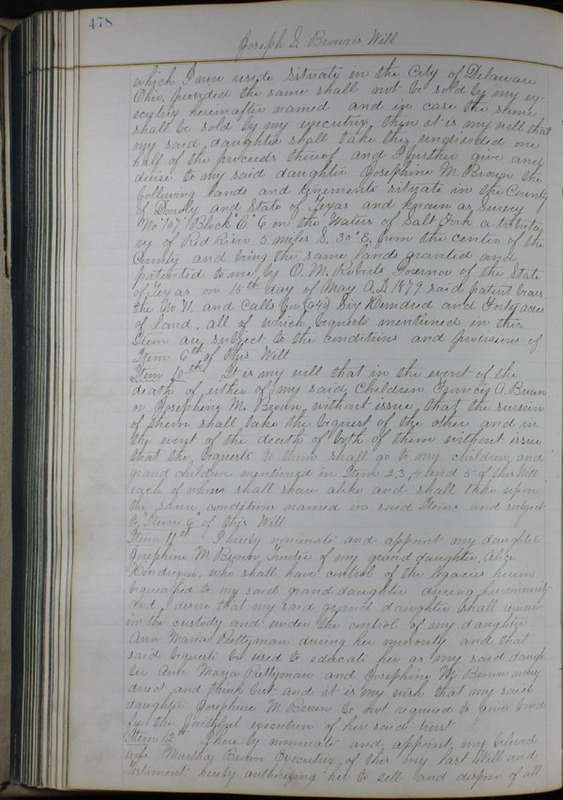 478
Joseph S. Brown's Will
which I now reside situate in the City of Delaware
Ohio, provided the same shall not be sold by my ex-
ecutrix hereinafter named and in case the same
shall be sold by my executrix, then it is my will that
my said daughter shall take the undivided one
half of the proceeds thereof and I further give and
devise to my said daughter Josephine M. Brown the
following lands and tenements situate in the County
of Donley and State of Texas and known as Survey
No 107 Block "C" 6 on the Waters of Salt Fork a tributa-
ry of Red River 5 miles S. 30° E. from the center of the
County and being the same lands granted and
patented to me by O. M. Roberts Governor of the State
of Texas on 15th day of May A.D. 1879 said patent bears
the No 71. and calls for (640) Six Hundred and Forty acres
of land, all of which bequests mentioned in this
Item are subject to the conditions and provisions of
Item 6th of this Will
Item 10th It is my will that in the event of the
death of either of my said children Francis A. Brown
or Josephine M. Brown, without issue, that the survivor
of them shall take the bequest of the other and in
the event of the death of both of them without issue
that the bequests to them shall go to my children and
grand children mentioned in Item 2, 3, 4 and 5 of this Will
each of whom shall share alike and shall take upon
the same conditions named in said Items and subject
to "Item 6" of this Will
Item 11th I hereby nominate and appoint my daughter
Josephine M. Brown, Trustee of my grand daughter, Alice
who shall have control of the legacies herein
bequeathed to my said grand daughter during her minority
and I desire that my said grand daughter shall remain
in the custody and under the control of my daughter
Ann Maria Prettyman during her minority and that
said bequests be used to educate her as my said daugh-
ter Ann Maria Prettyman and Josephine M. Brown may
direct and think best and it is my wish that my said
daughter Josephine M. Brown be not required to give bond
for the faithful execution of her said trust
Item 12th I hereby nominate and appoint my beloved
wife Martha Brown Executrix of this my last Will and
Testament hereby authorizing her to sell and dispose of all